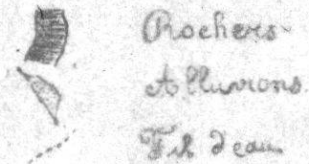 Rochers
Alluvions
Fil d'eau